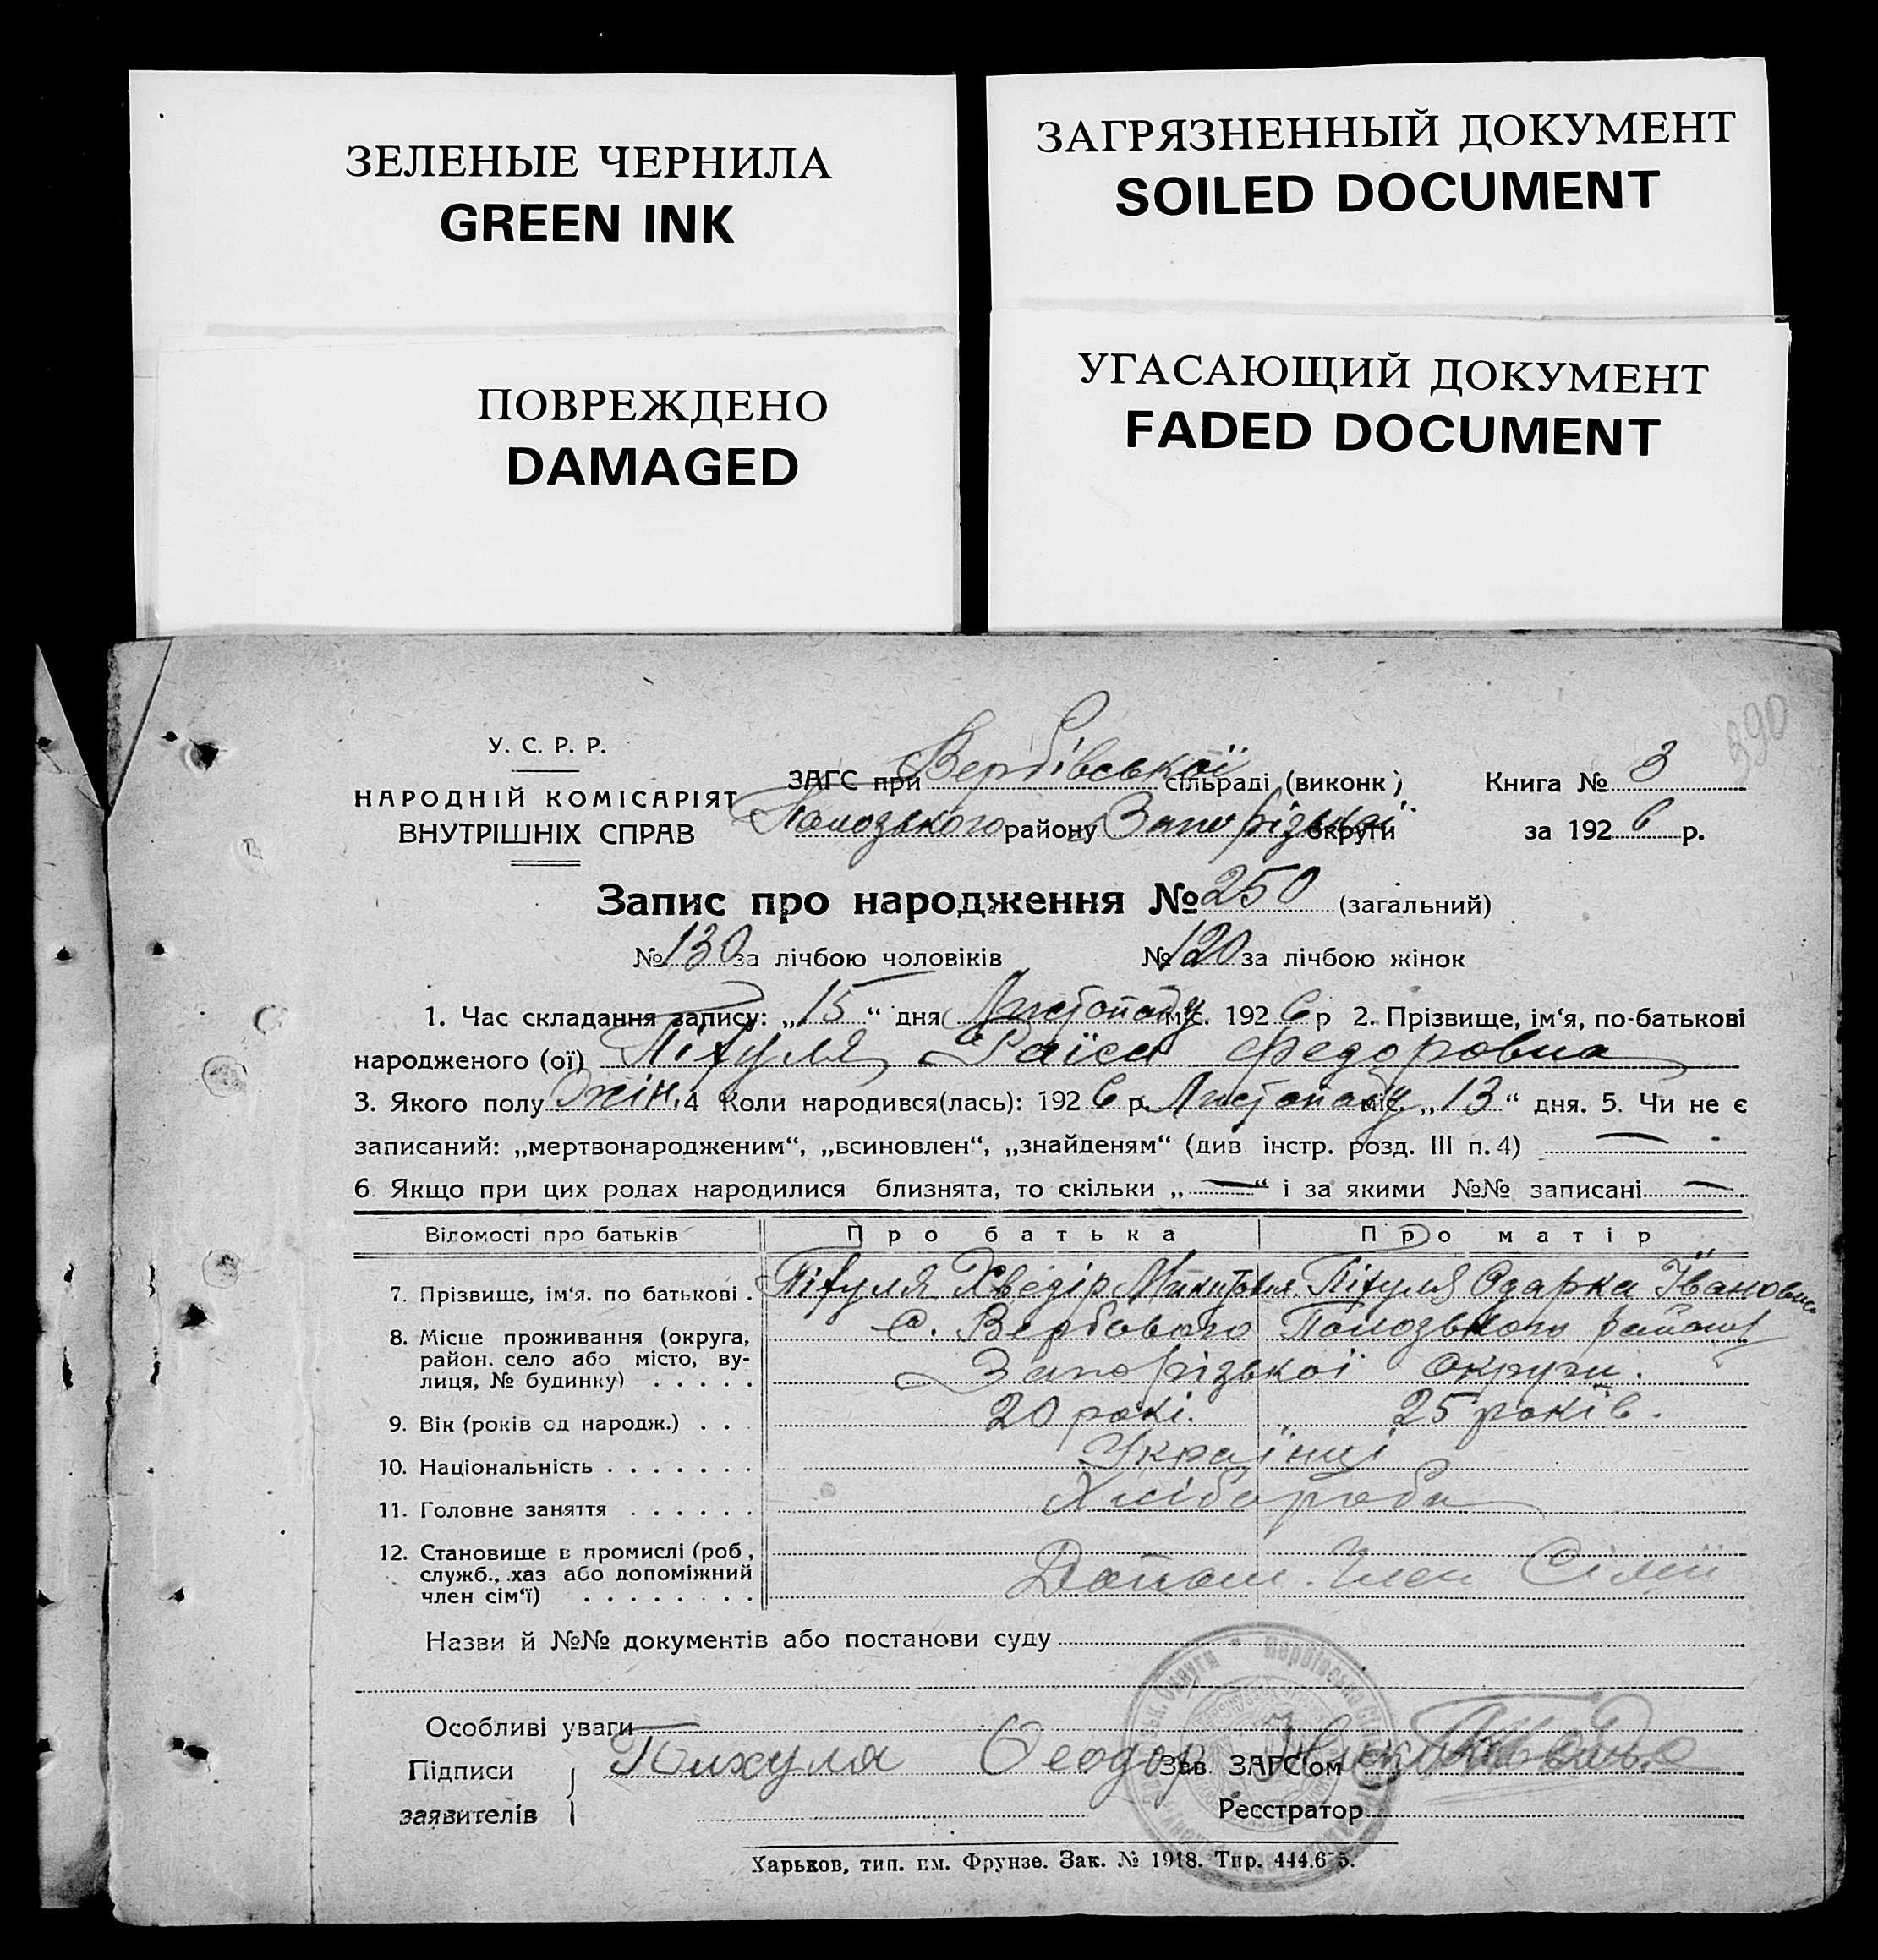 ЗЕЛЕНЫЕ ЧЕРНИЛА
GREEN INK
ЗАГРЯЗНЕННЫЙ ДОКУМЕНТ
SOILED DOCUMENT
ПОВРЕЖДЕНО
DAMAGED
УГАСАЮЩИЙ ДОКУМЕНТ
FADED DOCUMENT
390
У. С. Р. Р.
НАРОДНІЙ КОМІСАРІЯТ
ВНУТРІШНІХ СПРАВ
ЗАГС при Вербівської сільраді (виконк)
Полозького району Запорізької округи
Книга № 3
за 1926 р.
Запис про народження № 250 (загальний)
№ 130 за лічбою чоловіків № 120 за лічбою жінок
1. Час складання запису: „15“ дня Листопаду міс. 1926 р 2. Прізвище, ім‘я, по-батькові
народженого (ої) Піхуля Раїса Федоровна
3. Якого полу Жін. 4 Коли народився(лась): 1926 р. Листопаду міс. „13“ дня. 5. Чи не є
записаний: „мертвонародженим“, „всиновлен“, „знайденям“ (див інстр. розд. III п. 4) —
6. Якщо при цих родах народилися близнята, то скільки „—“ і за якими №№ записані —
Відомості про батьків Про батька Про матір
7. Прізвище, ім‘я. по батькові . Піхуля Хведір Микитович Піхуля Одарка Івановна
8. Місце проживання (округа, С. Вербового Полозького району
район. село або місто, ву-
лиця, № будинку) . . . . . Запорізької округи.
9. Вік (років од народж.) . . . 20 рокі. 25 років.
10. Національність . . . . . . . Українці
11. Головне заняття . . . . . . Хлібороби
12. Становище в промислі (роб,
служб., хаз або допоміжний Допом. Член Сімії
член сім‘ї) . . . . . . . .
Назви й №№ документів або постанови суду
Особливі уваги
Підписи Пихуля Феодор Зав ЗАГС‘ом
заявителів Реєстратор
Харьков, тип. им. Фрунзе. Зак. № 1918. Тир. 444.6-5.